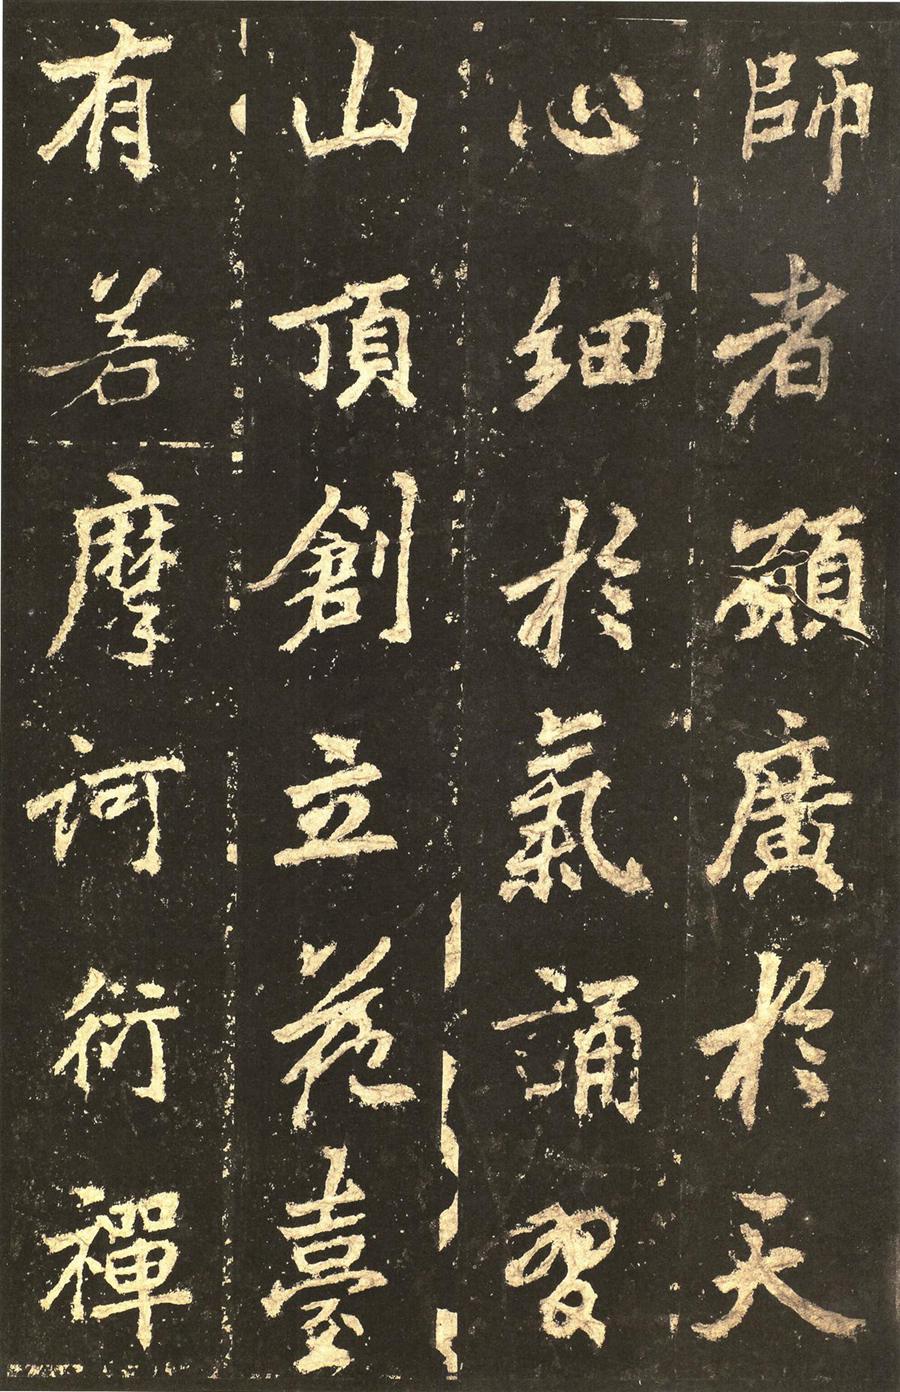 師者願廣於天
心細於氣誦習
山頂創立花臺
有若摩訶衍禪